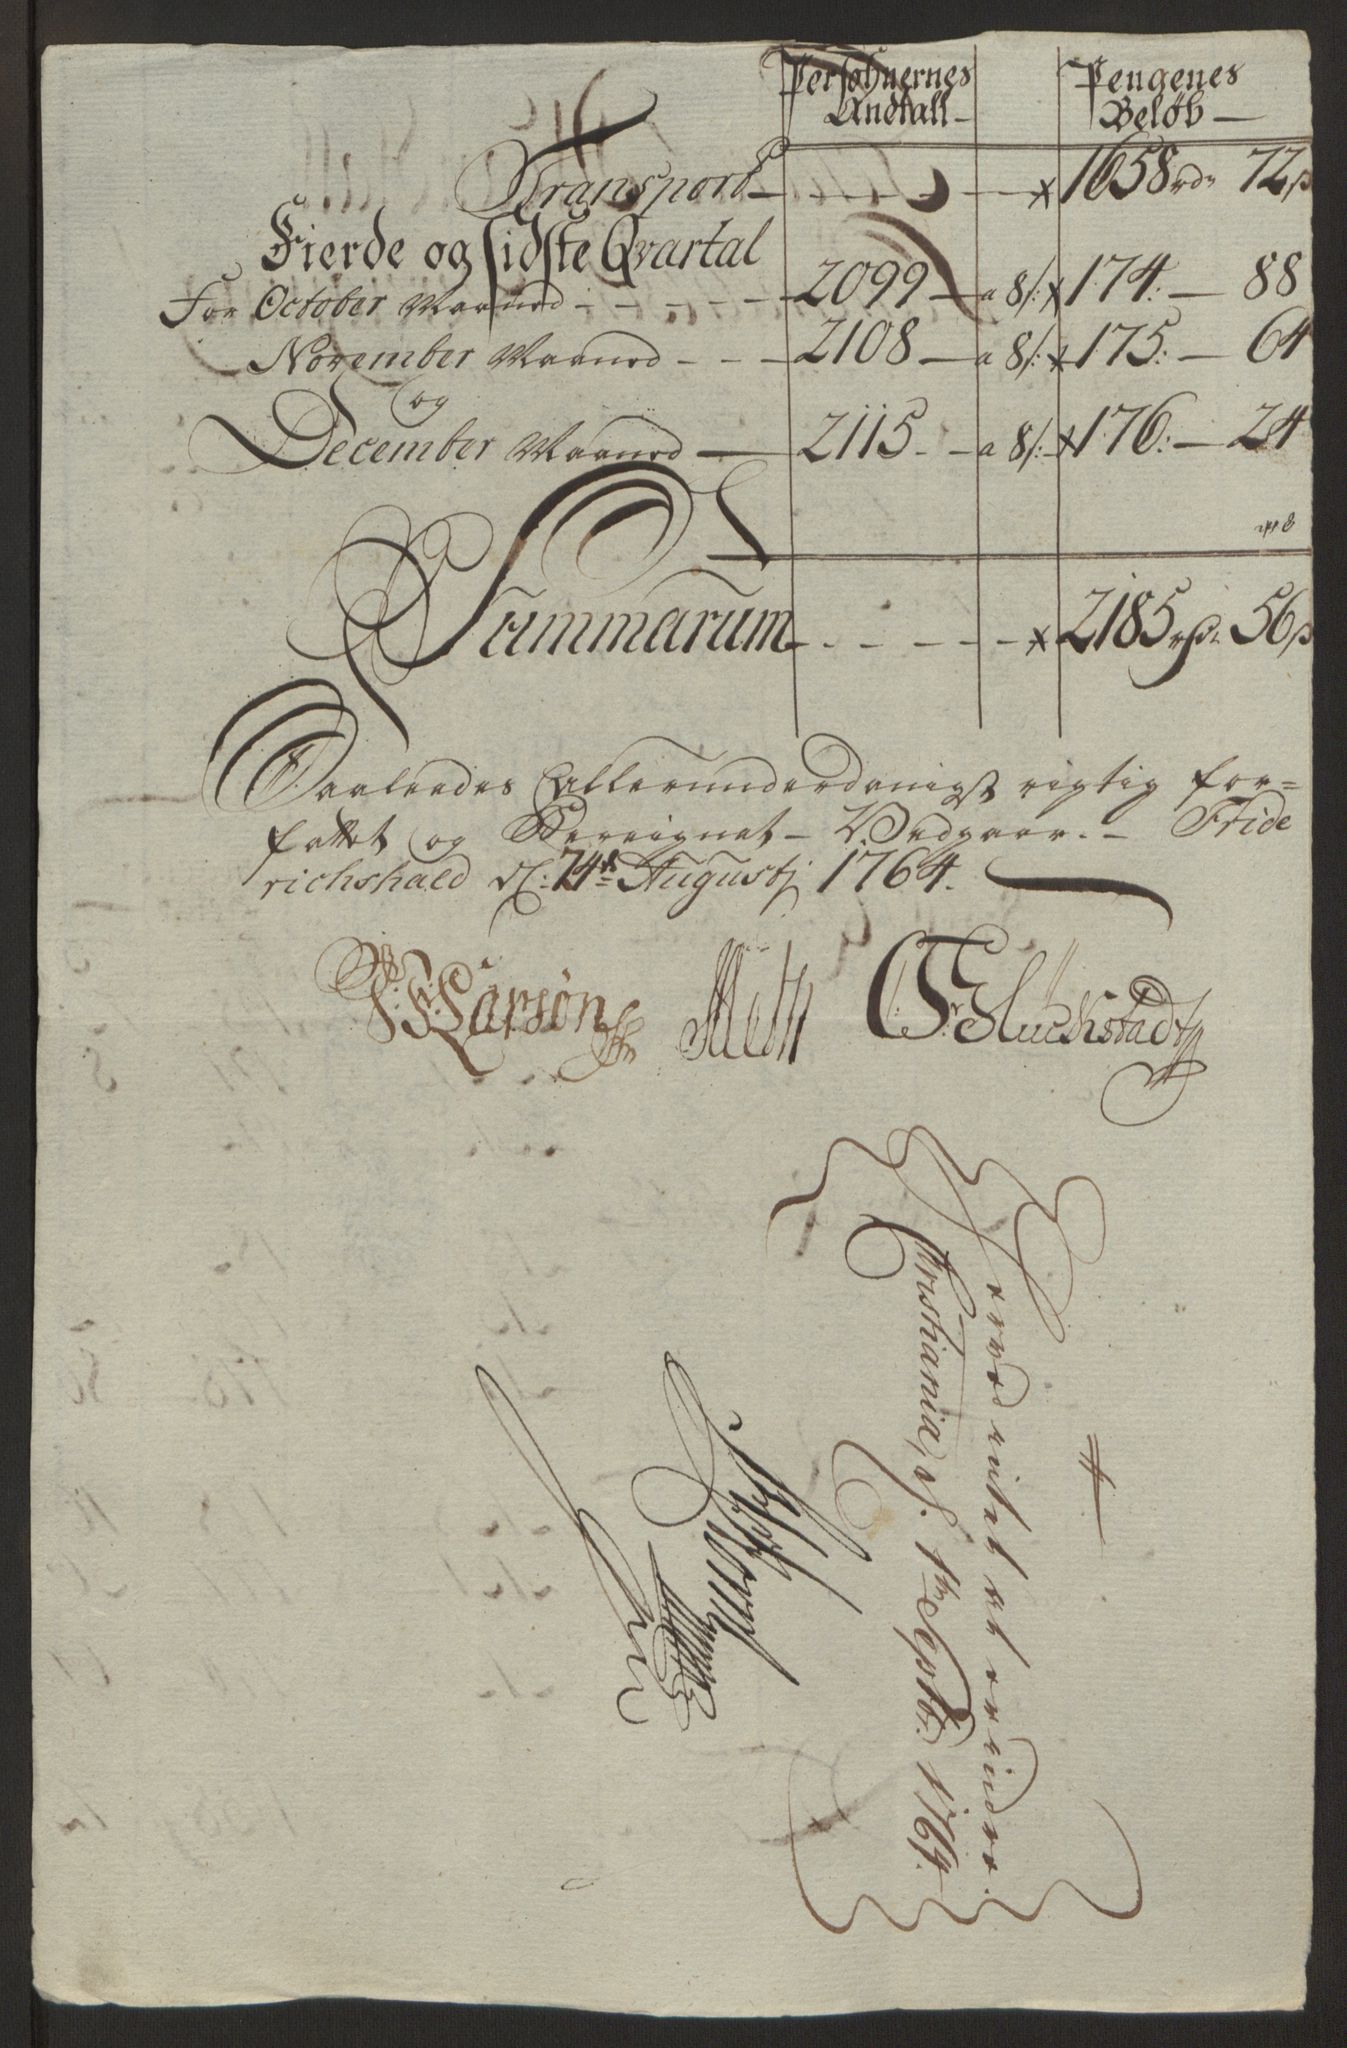 Persohnernes Andtall - Pengenes Beløb -
Transport - - - - - 1658 rdr 72 ß
Fierde og sidste Qvartal
For October Maaned - - - - - 2099 - a 8/: 174: - 88
November Maaned - - - 2108 - a 8/: 175: - 64
og
December Maaned - 2115 - - a 8/: 176: - 24
Summarum - - - - - 2185 rdr 56 ß
Saaleedes Allerunderdanigst rigtig for=
fattet og Bereignet - Vedgaar. - Fride
richshald d: 24de Augustj 1764.
Larsøn CFr Glückstadt
Reviderit et at erindre.
Christiania, d. 1te Septbr. 1764.